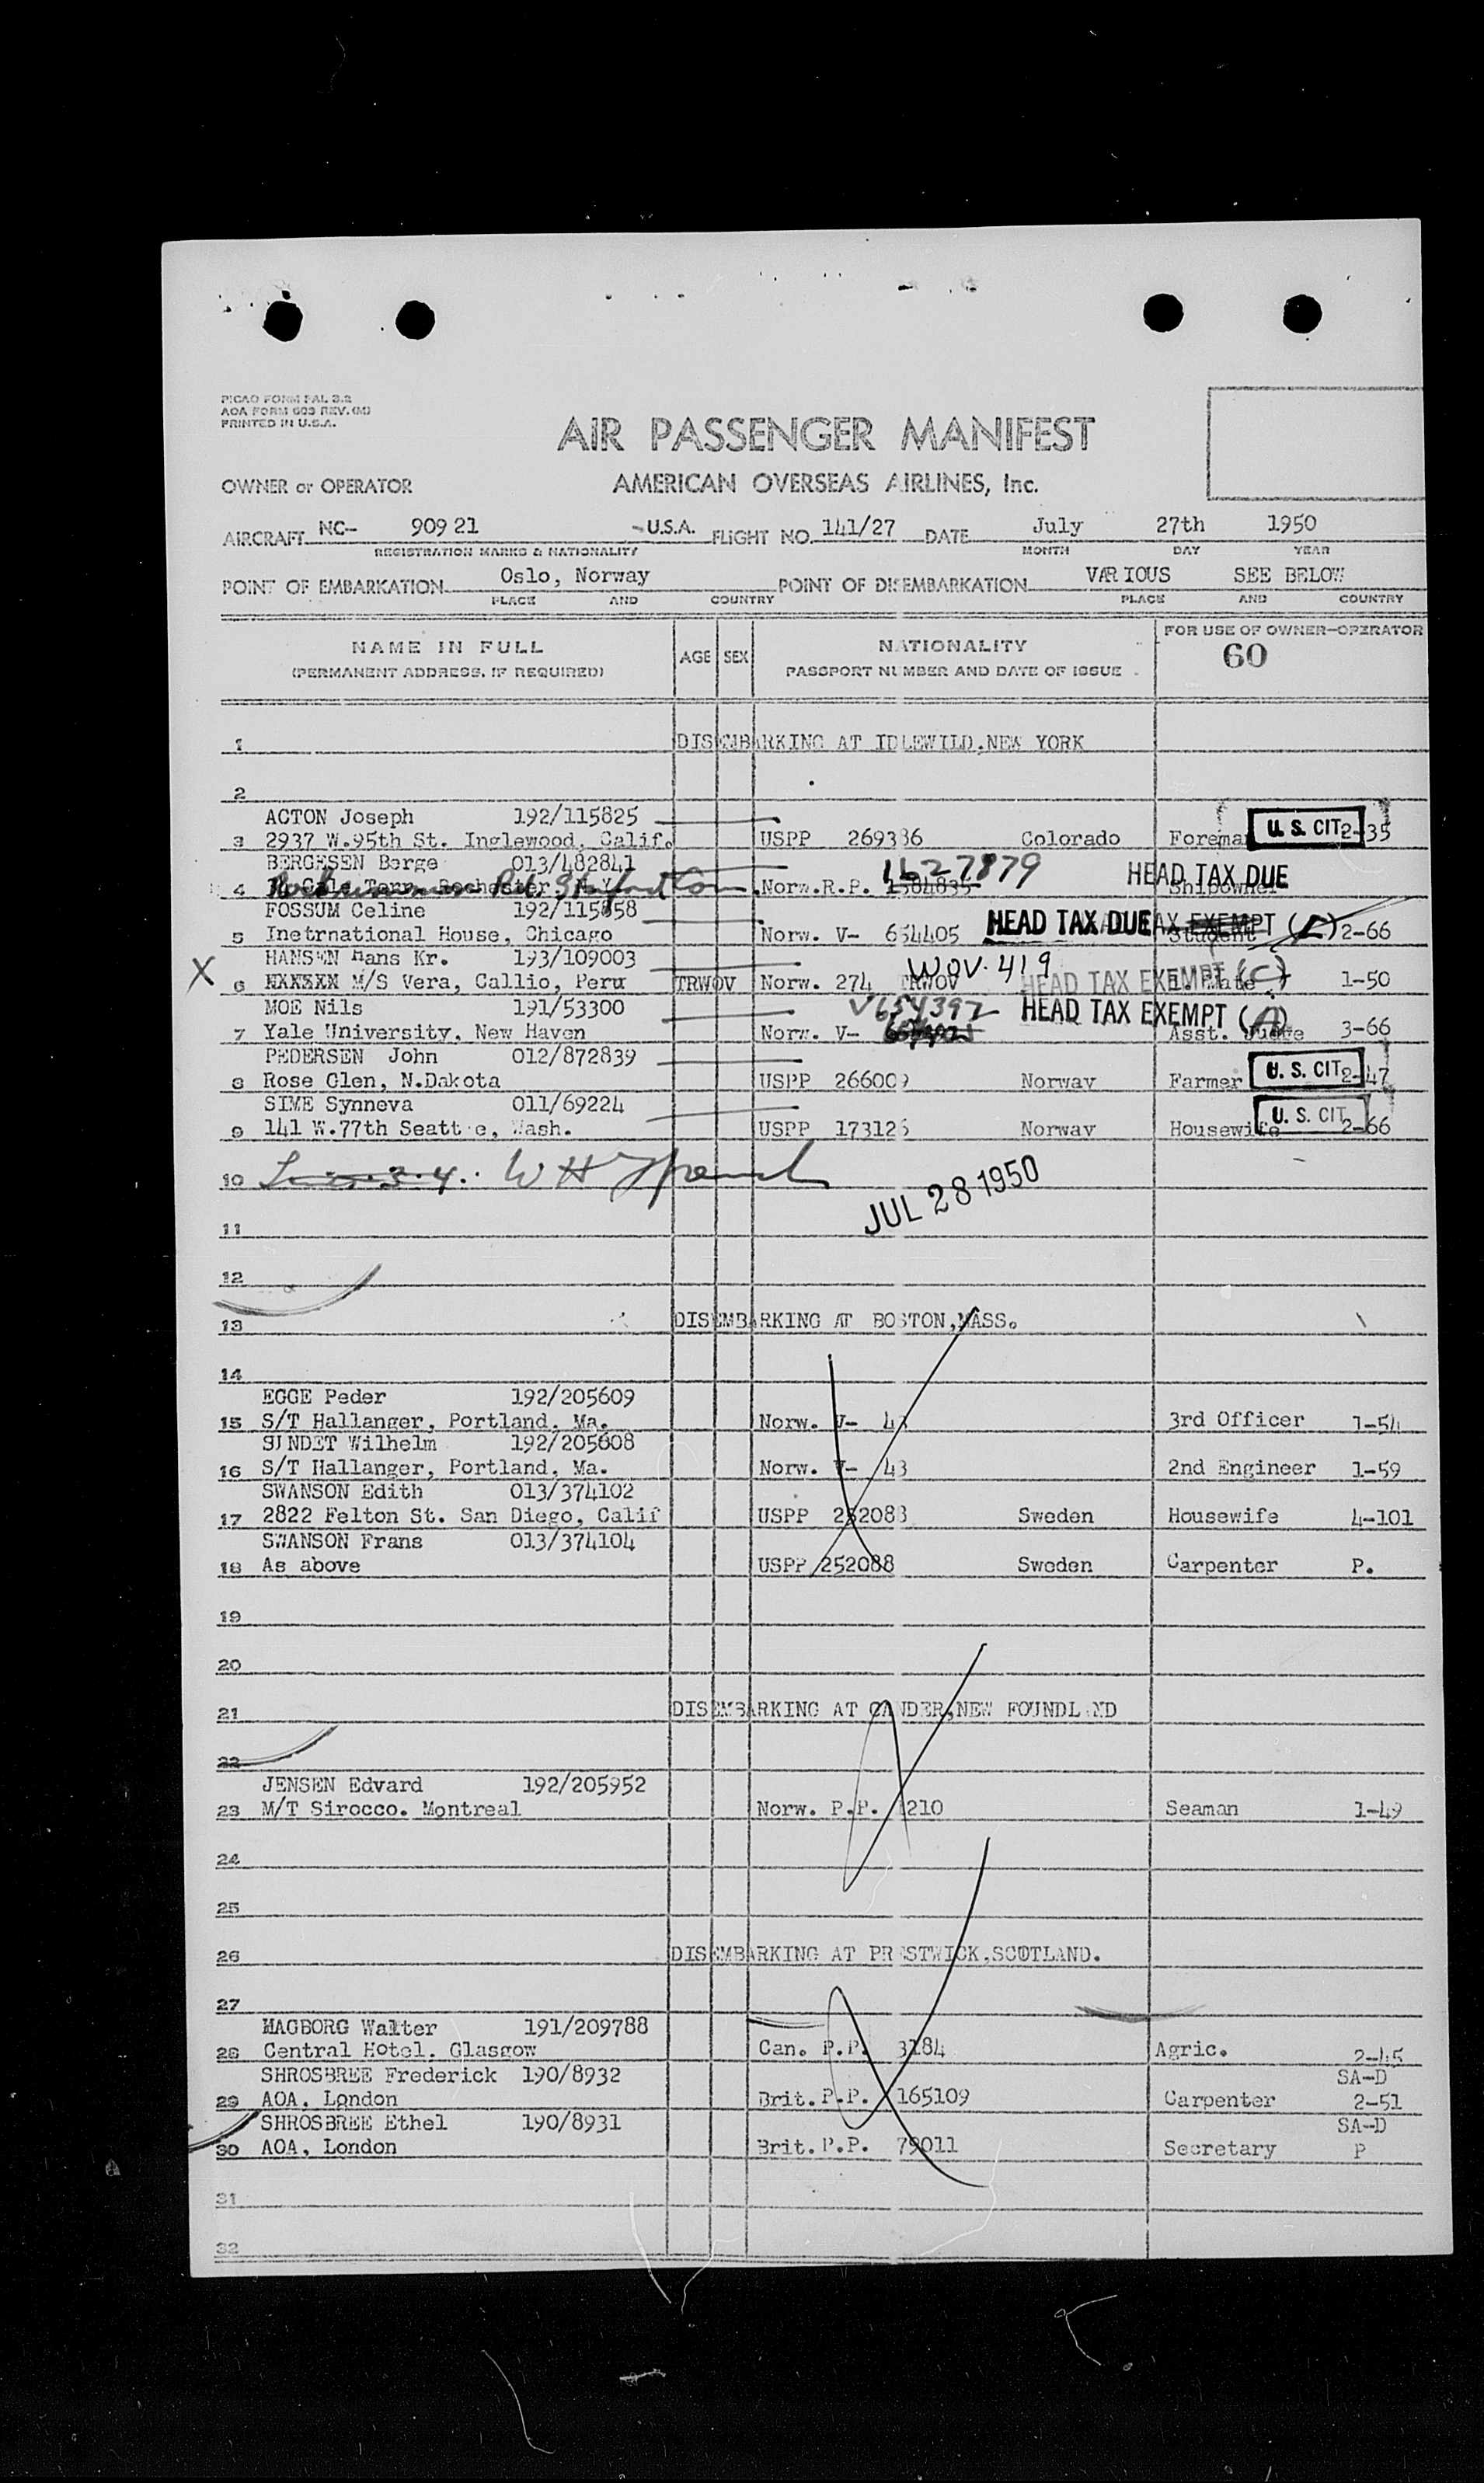 PICAO FORM PAL 3.2
AOA FORM 603 REV. (M)
PRINTED IN U.S.A.
AIR PASSENGER MANIFEST
OWNER or OPERATOR AMERICAN OVERSEAS AIRLINES, Inc.
AIRCRAFT NC- 909 21 -U.S.A. FLIGHT NO. 141/27 DATE July 27th 1950
REGISTRATION MARKS & NATIONALITY MONTH DAY YEAR
POINT OF EMBARKATION Oslo, Norway POINT OF DISEMBARKATION VARIOUS SEE BELOW
PLACE AND COUNTRY PLACE AND COUNTRY
NAME IN FULL AGE SEX NATIONALITY FOR USE OF OWNER-OPERATOR
(PERMANENT ADDRESS, IF REQUIRED) PASSPORT NUMBER AND DATE OF ISSUE 60
1 DISEMBARKING AT IDLEWILD,NEW YORK
2
ACTON Joseph 192/115825
3 2937 W.95th St. Inglewood, Calif. USPP 269386 Colorado Foreman U. S. CIT 2-35
BERGESEN Berge 013/482841 1627879 HEAD TAX DUE
4 Rochester, N.Y. Norw.R.P. Shipowner
FOSSUM Celine 192/115858 HEAD TAX DUE TAX EXEMPT
5 Inetrnational House, Chicago Norw. V- 654405 Student 2-66
HANSEN Hans Kr. 193/109003 WOV. 419 HEAD TAX EXEMPT (C)
X 6 XXXXXX M/S Vera, Callio, Peru TRWOV Norw. 274 TRWOV 1-50
MOE Nils 191/53300 V654397 HEAD TAX EXEMPT (A)
7 Yale University, New Haven Norw. V- Asst. Judge 3-66
PEDERSEN John 012/872839
8 Rose Glen, N.Dakota USPP 266009 Norway Farmer U. S. CIT 2-47
SIME Synneva 011/69224
9 141 W.77th Seattle, Wash. USPP 173126 Norway Housewife U. S. CIT 2-66
10 W H
JUL 28 1950
11
12
13 DISEMBARKING AT BOSTON,MASS.
14
EGGE Peder 192/205609
15 S/T Hallanger, Portland, Ma. Norw. V- 43 3rd Officer 1-54
SUNDET Wilhelm 192/205608
16 S/T Hallanger, Portland, Ma. Norw. V- 43 2nd Engineer 1-59
SWANSON Edith 013/374102
17 2822 Felton St. San Diego, Calif USPP 252088 Sweden Housewife 4-101
SWANSON Frans 013/374104
18 As above USPP 252088 Sweden Carpenter P.
19
20
21 DISEMBARKING AT GANDER,NEW FOUNDLAND
22
JENSEN Edvard 192/205952
23 M/T Sirocco. Montreal Norw. P.P. 1210 Seaman 1-49
24
25
26 DISEMBARKING AT PRESTWICK,SCOTLAND.
27
MAGBORG Walter 191/209788
28 Central Hotel. Glasgow Can. P.P. 3184 Agric. 2-45
SHROSBREE Frederick 190/8932 SA-D
29 AOA, London Brit.P.P. 165109 Carpenter 2-51
SHROSBREE Ethel 190/8931 SA-D
30 AOA, London Brit.P.P. 79011 Secretary P
31
32